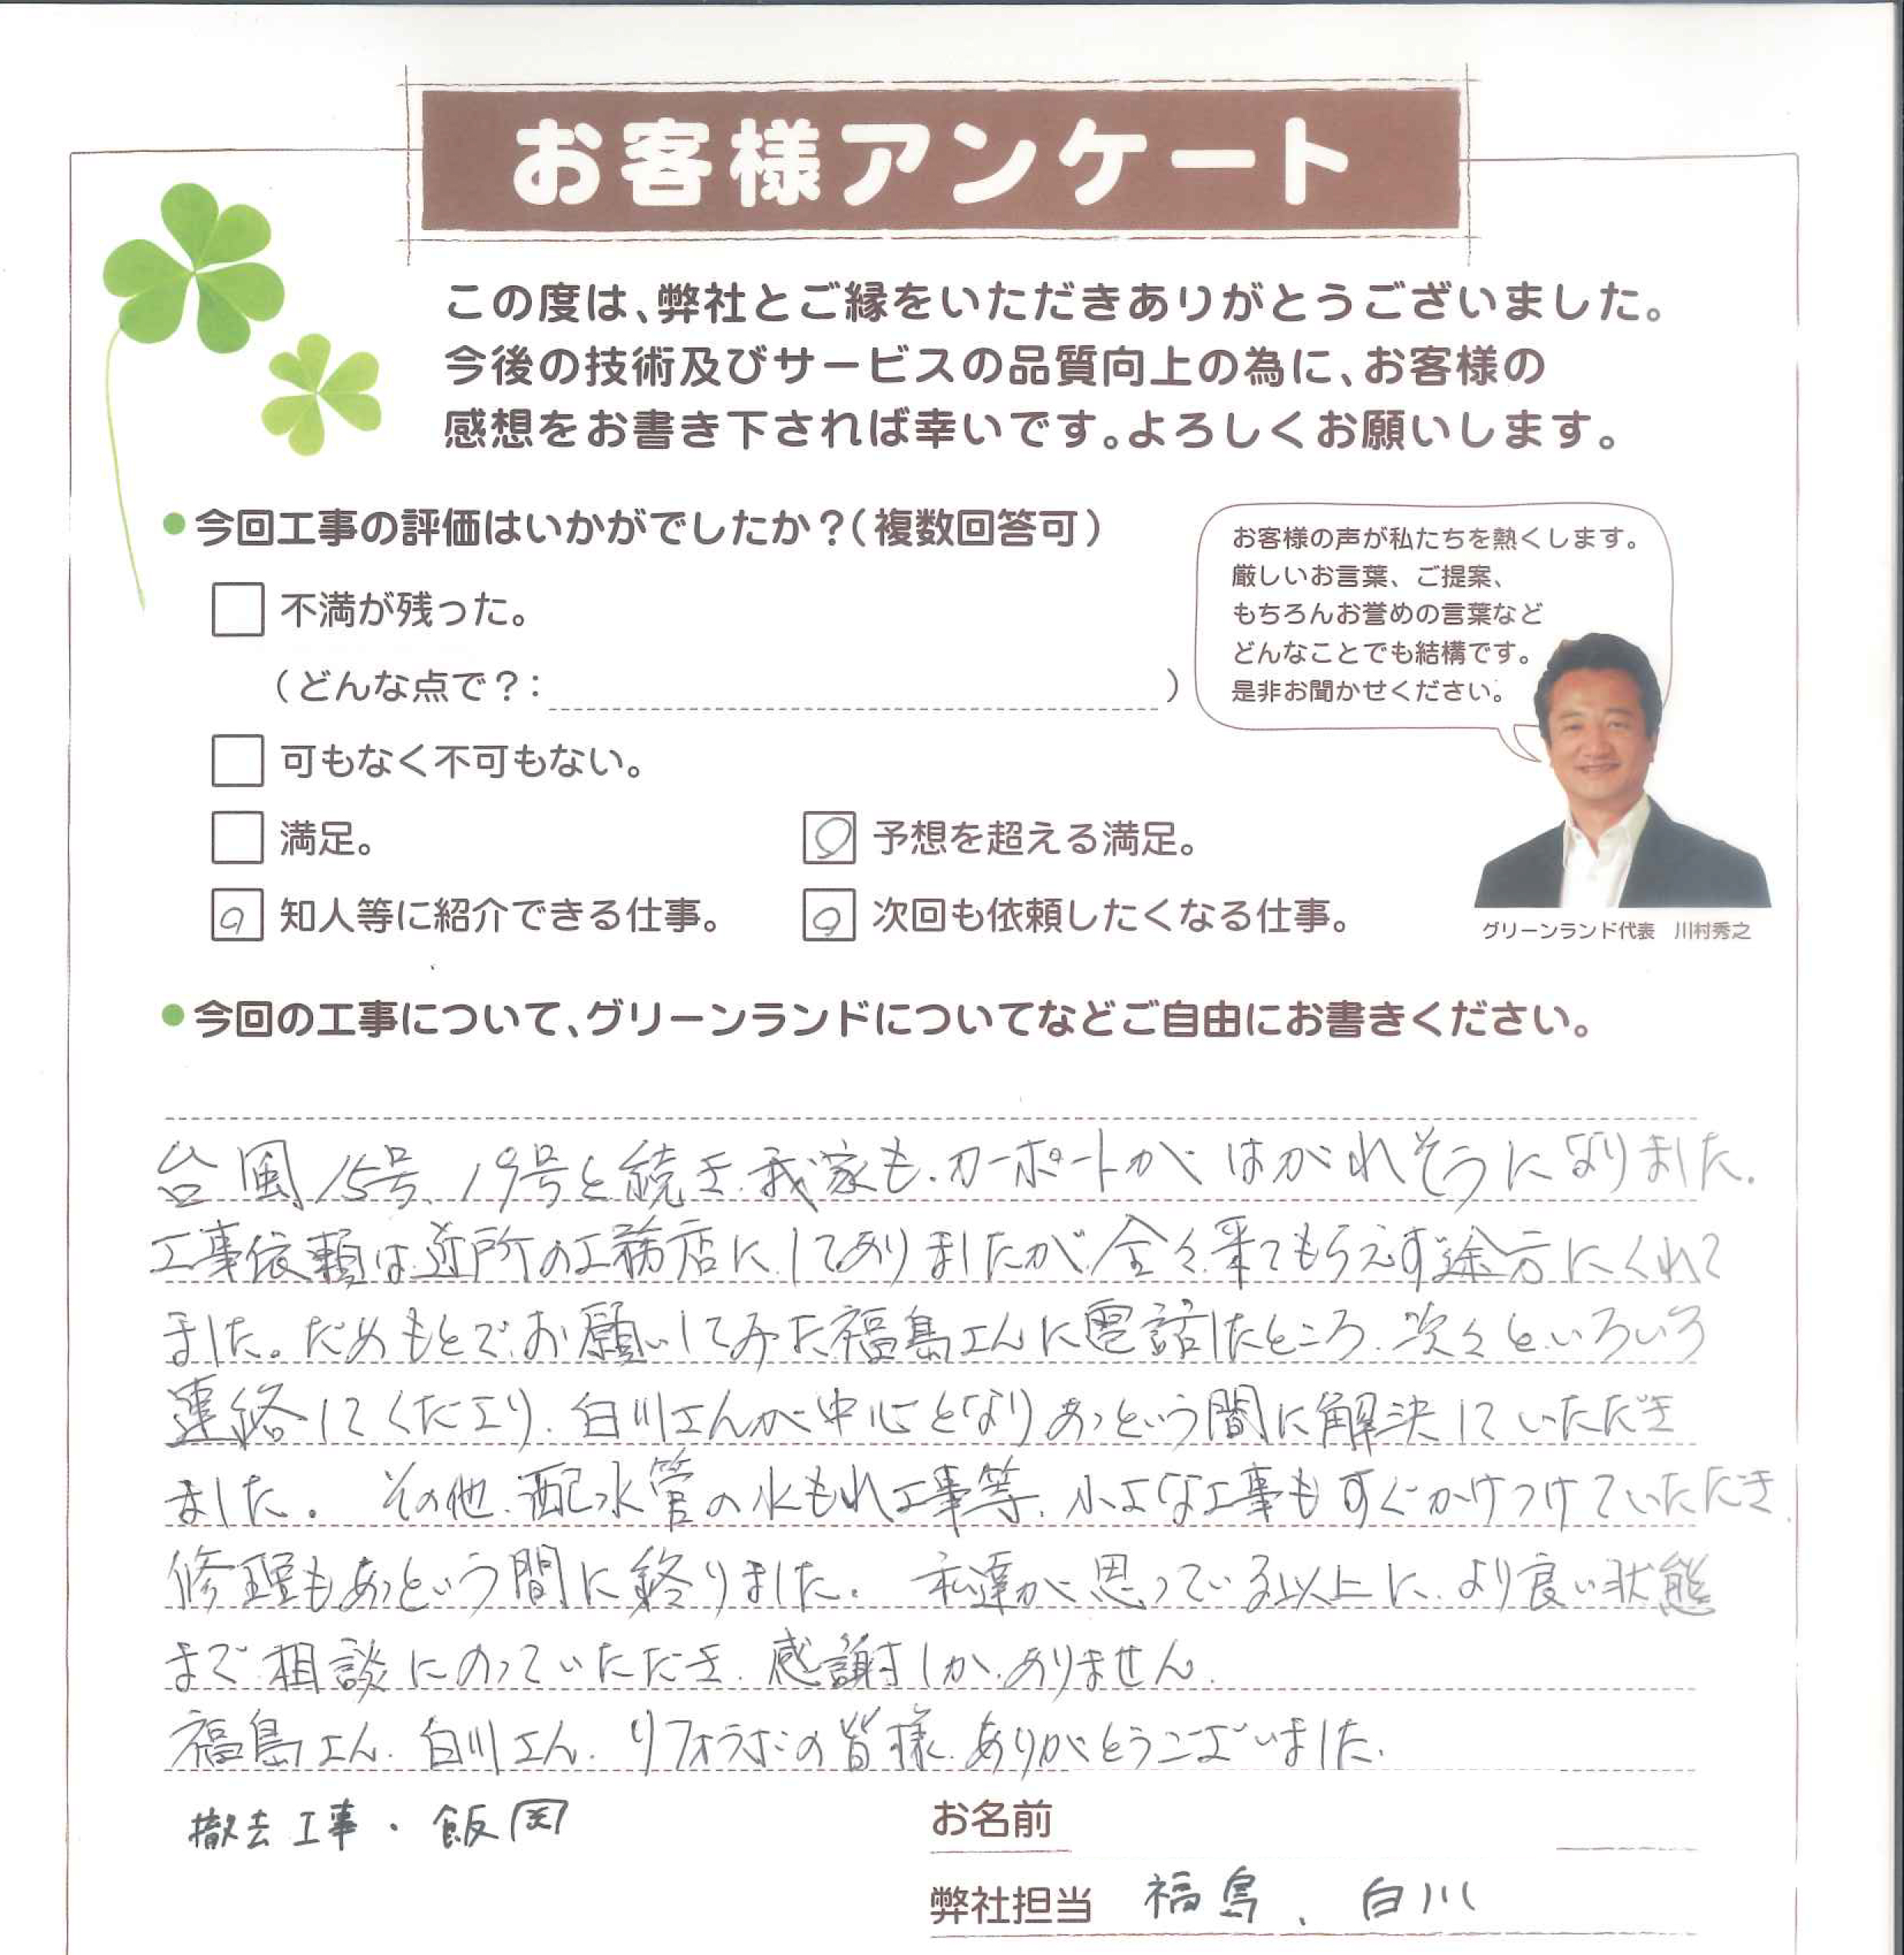 お客様アンケート
この度は、弊社とご縁をいただきありがとうございました。
今後の技術及びサービスの品質向上の為に、お客様の
感想をお書き下されば幸いです。よろしくお願いします。
●今回工事の評価はいかがでしたか？（複数回答可）
不満が残った。
（どんな点で？：　）
可もなく不可もない。
満足。
予想を超える満足。
知人等に紹介できる仕事。
次回も依頼したくなる仕事。
お客様の声が私たちを熱くします。
厳しいお言葉、ご提案、
もちろんお誉めの言葉など
どんなことでも結構です。
是非お聞かせください。
グリーンランド代表　川村秀之
●今回の工事について、グリーンランドについてなどご自由にお書きください。
台風15号、19号と続き、我家も、カーポートが はがれそうになりました。
工事依頼は近所の工務店にしてありましたが、全々来てもらえず途方にくれて
ました。だめもとでお願いしてみた福島さんに電話したところ、次々といろいろ
連絡してくださり、白川さんが中心となりあっという間に解決していただき
ました。 その他、配水管の水もれ工事等、小さな工事もすぐかけつけていただき、
修理もあっという間に終りました。 私達が思っている以上に、より良い状態
まで相談にのっていただき、感謝しかありません。
福島さん、白川さん、リフォラボの皆様、ありがとうございました。
撤去工事・飯岡
お名前
弊社担当 福島、白川